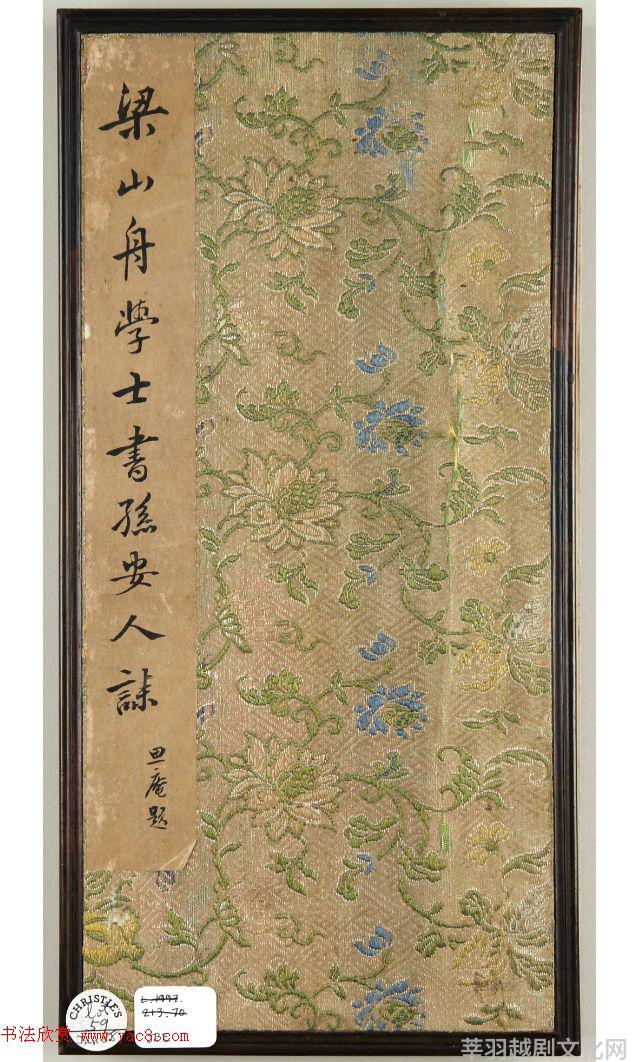 梁山舟學士書孫安人誄
庵題
CHRISTIE'S
Lot
59
L.1997.
213.70
书法欣赏 www.yac8.com
莘羽越剧文化网